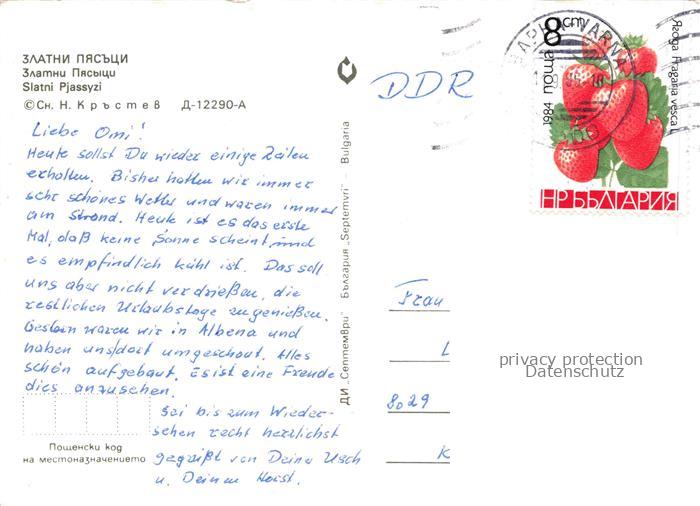 ЗЛАТНИ ПЯСЪЦИ
Златни Пясыци
Slatni Pjassyzi
© Сн. Н. Кръстев Д-12290-А
Liebe Omi!
Heute sollst Du wieder einige Zeilen
erhalten. Bisher hatten wir immer
sehr schönes Wetter und waren immer
am Strand. Heute ist es das erste
Mal, daß keine Sonne scheint, und
es empfindlich kühl ist. Das soll
uns aber nicht verdrießen, die
restlichen Urlaubstage zu genießen.
Gestern waren wir in Albena und
haben uns dort umgeschaut. Alles
schön aufgebaut. Es ist eine Freude
dies anzusehen.
Sei bis zum Wieder-
sehen recht herzlichst
gegrüßt von Deiner
u. Deinem Horst.
Пощенски код
на местоназначението
ДИ „Септември" България „Septemvri" - Bulgaria
DDR
8 ст
1984 поща
Ягода Fragaria vesca L
НР БЪЛГАРИЯ
VARNA
Frau
L
8029
K
privacy protection
Datenschutz